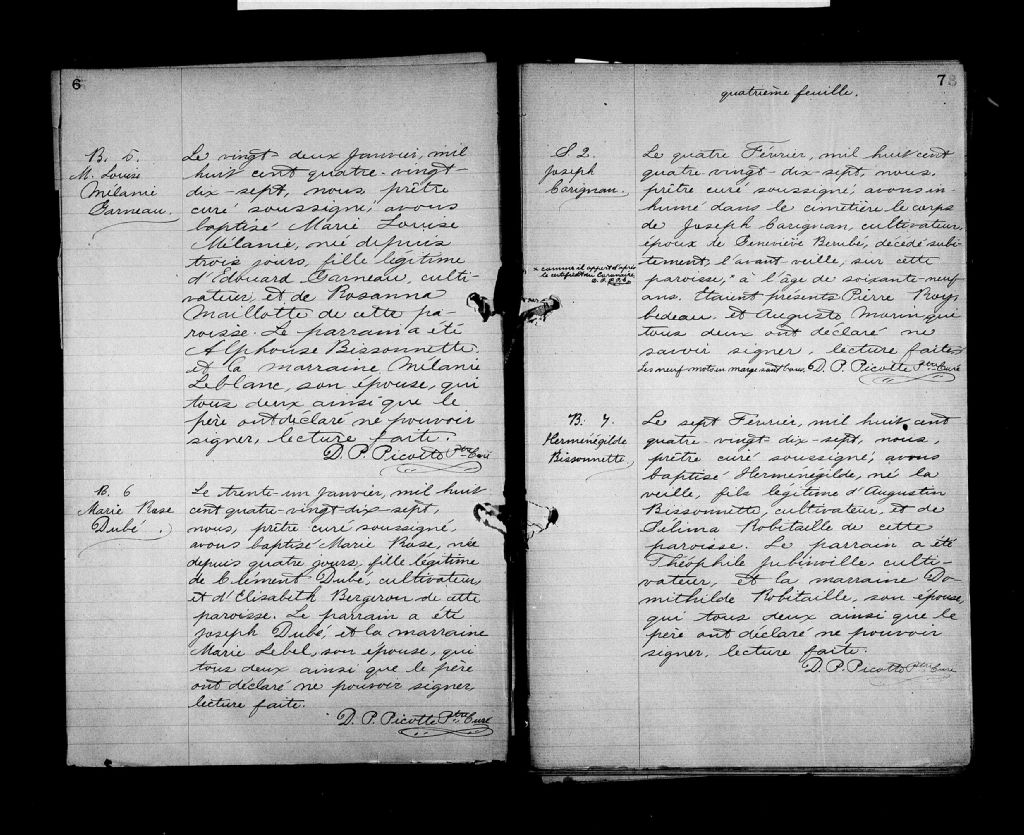 6
B. 5.
M. Louise
Mélanie
Garneau.
Le vingt-deux Janvier, mil
huit cent quatre-vingt-
dix-sept, nous, prêtre
curé soussigné, avons
baptisé Marie Louise
Mélanie, née depuis
trois jours, fille légitime
d'Edouard Garneau, culti-
vateur, et de Rosanna
Maillotte de cette pa-
roisse. Le parrain a été
Alphonse Bissonnette
et la marraine Mélanie
Leblanc, son épouse, qui
tous deux ainsi que le
père ont déclaré ne pouvoir
signer, lecture faite.
D. P. Picotte Ptre Curé
B. 6
Marie Rose
Dubé.
Le trente-un Janvier, mil huit
cent quatre-vingt-dix-sept,
nous, prêtre curé soussigné,
avons baptisé Marie Rose, née
depuis quatre jours, fille légitime
de Clément Dubé, cultivateur,
et d'Elisabeth Bergeron de cette
paroisse. Le parrain a été
Joseph Dubé et la marraine
Marie Lebel, son épouse, qui
tous deux ainsi que le père
ont déclaré ne pouvoir signer,
lecture faite.
D. P. Picotte Ptre Curé
7
quatrième feuille.
S. 2.
Joseph
Carignan.
Le quatre Février, mil huit cent
quatre-vingt-dix-sept, nous,
prêtre curé soussigné, avons in-
humé dans le cimetière le corps
de Joseph Carignan, cultivateur,
époux de Geneviève Berubé, décédé subi-
tement, l'avant veille, sur cette
paroisse,* à l'âge de soixante-neuf
ans. Etaient présents Pierre Roy,
bedeau, et Auguste Marin qui
tous deux ont déclaré ne
savoir signer, lecture faite.
Les neuf mots en marge sont bons. D. P. Picotte Ptre Curé
x comme il appert d'après
le certificat du Coronaire
B. 7.
Herménégilde
Bissonnette
Le sept Février, mil huit cent
quatre-vingt-dix-sept, nous,
prêtre curé soussigné, avons
baptisé Herménégilde, né la
veille, fils légitime d'Augustin
Bissonnette, cultivateur, et de
Pélima Robitaille de cette
paroisse. Le parrain a été
Théophile Jubinville, culti-
vateur, et la marraine Do-
mithilde Robitaille, son épouse,
qui tous deux ainsi que le
père ont déclaré ne pouvoir
signer, lecture faite.
D. P. Picotte Ptre Curé